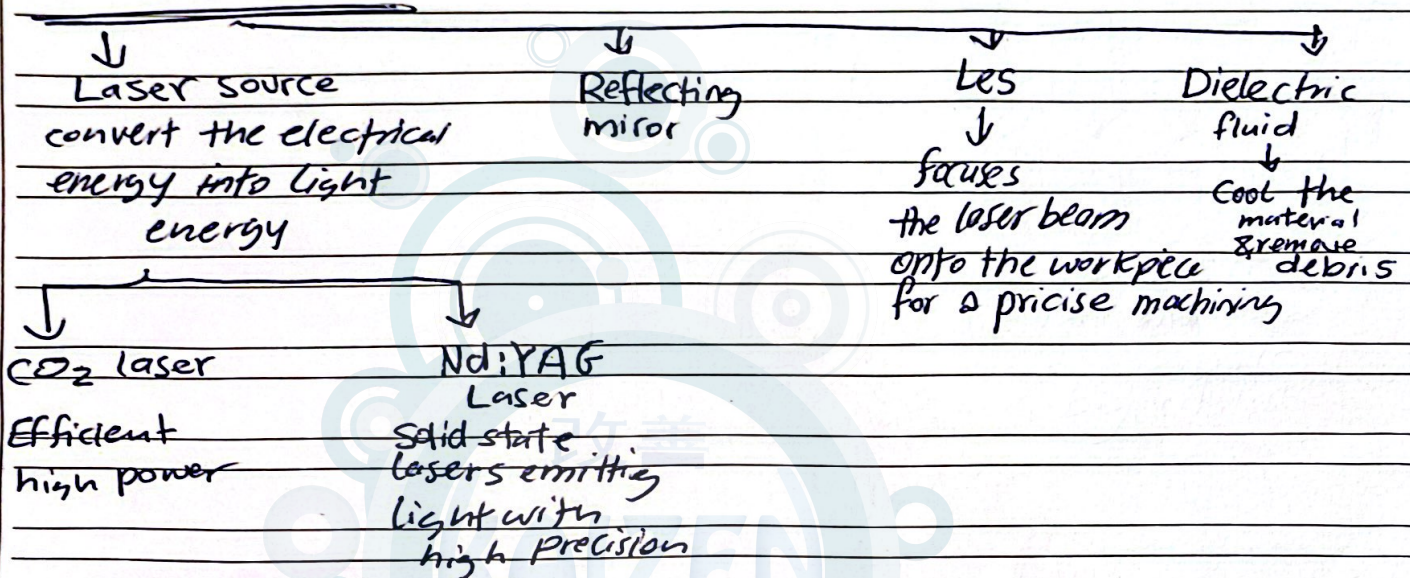 Laser source
convert the electrical
energy into light
energy
Reflecting
miror
Les
focuses
the laser beam
onto the workpiece
for a pricise machining
Dielectric
fluid
Cool the
material
& remove
debris
CO2 laser
Efficient
high power
Nd:YAG
Laser
Solid state
lasers emittig
light with
high precision
改善
KAIZEN